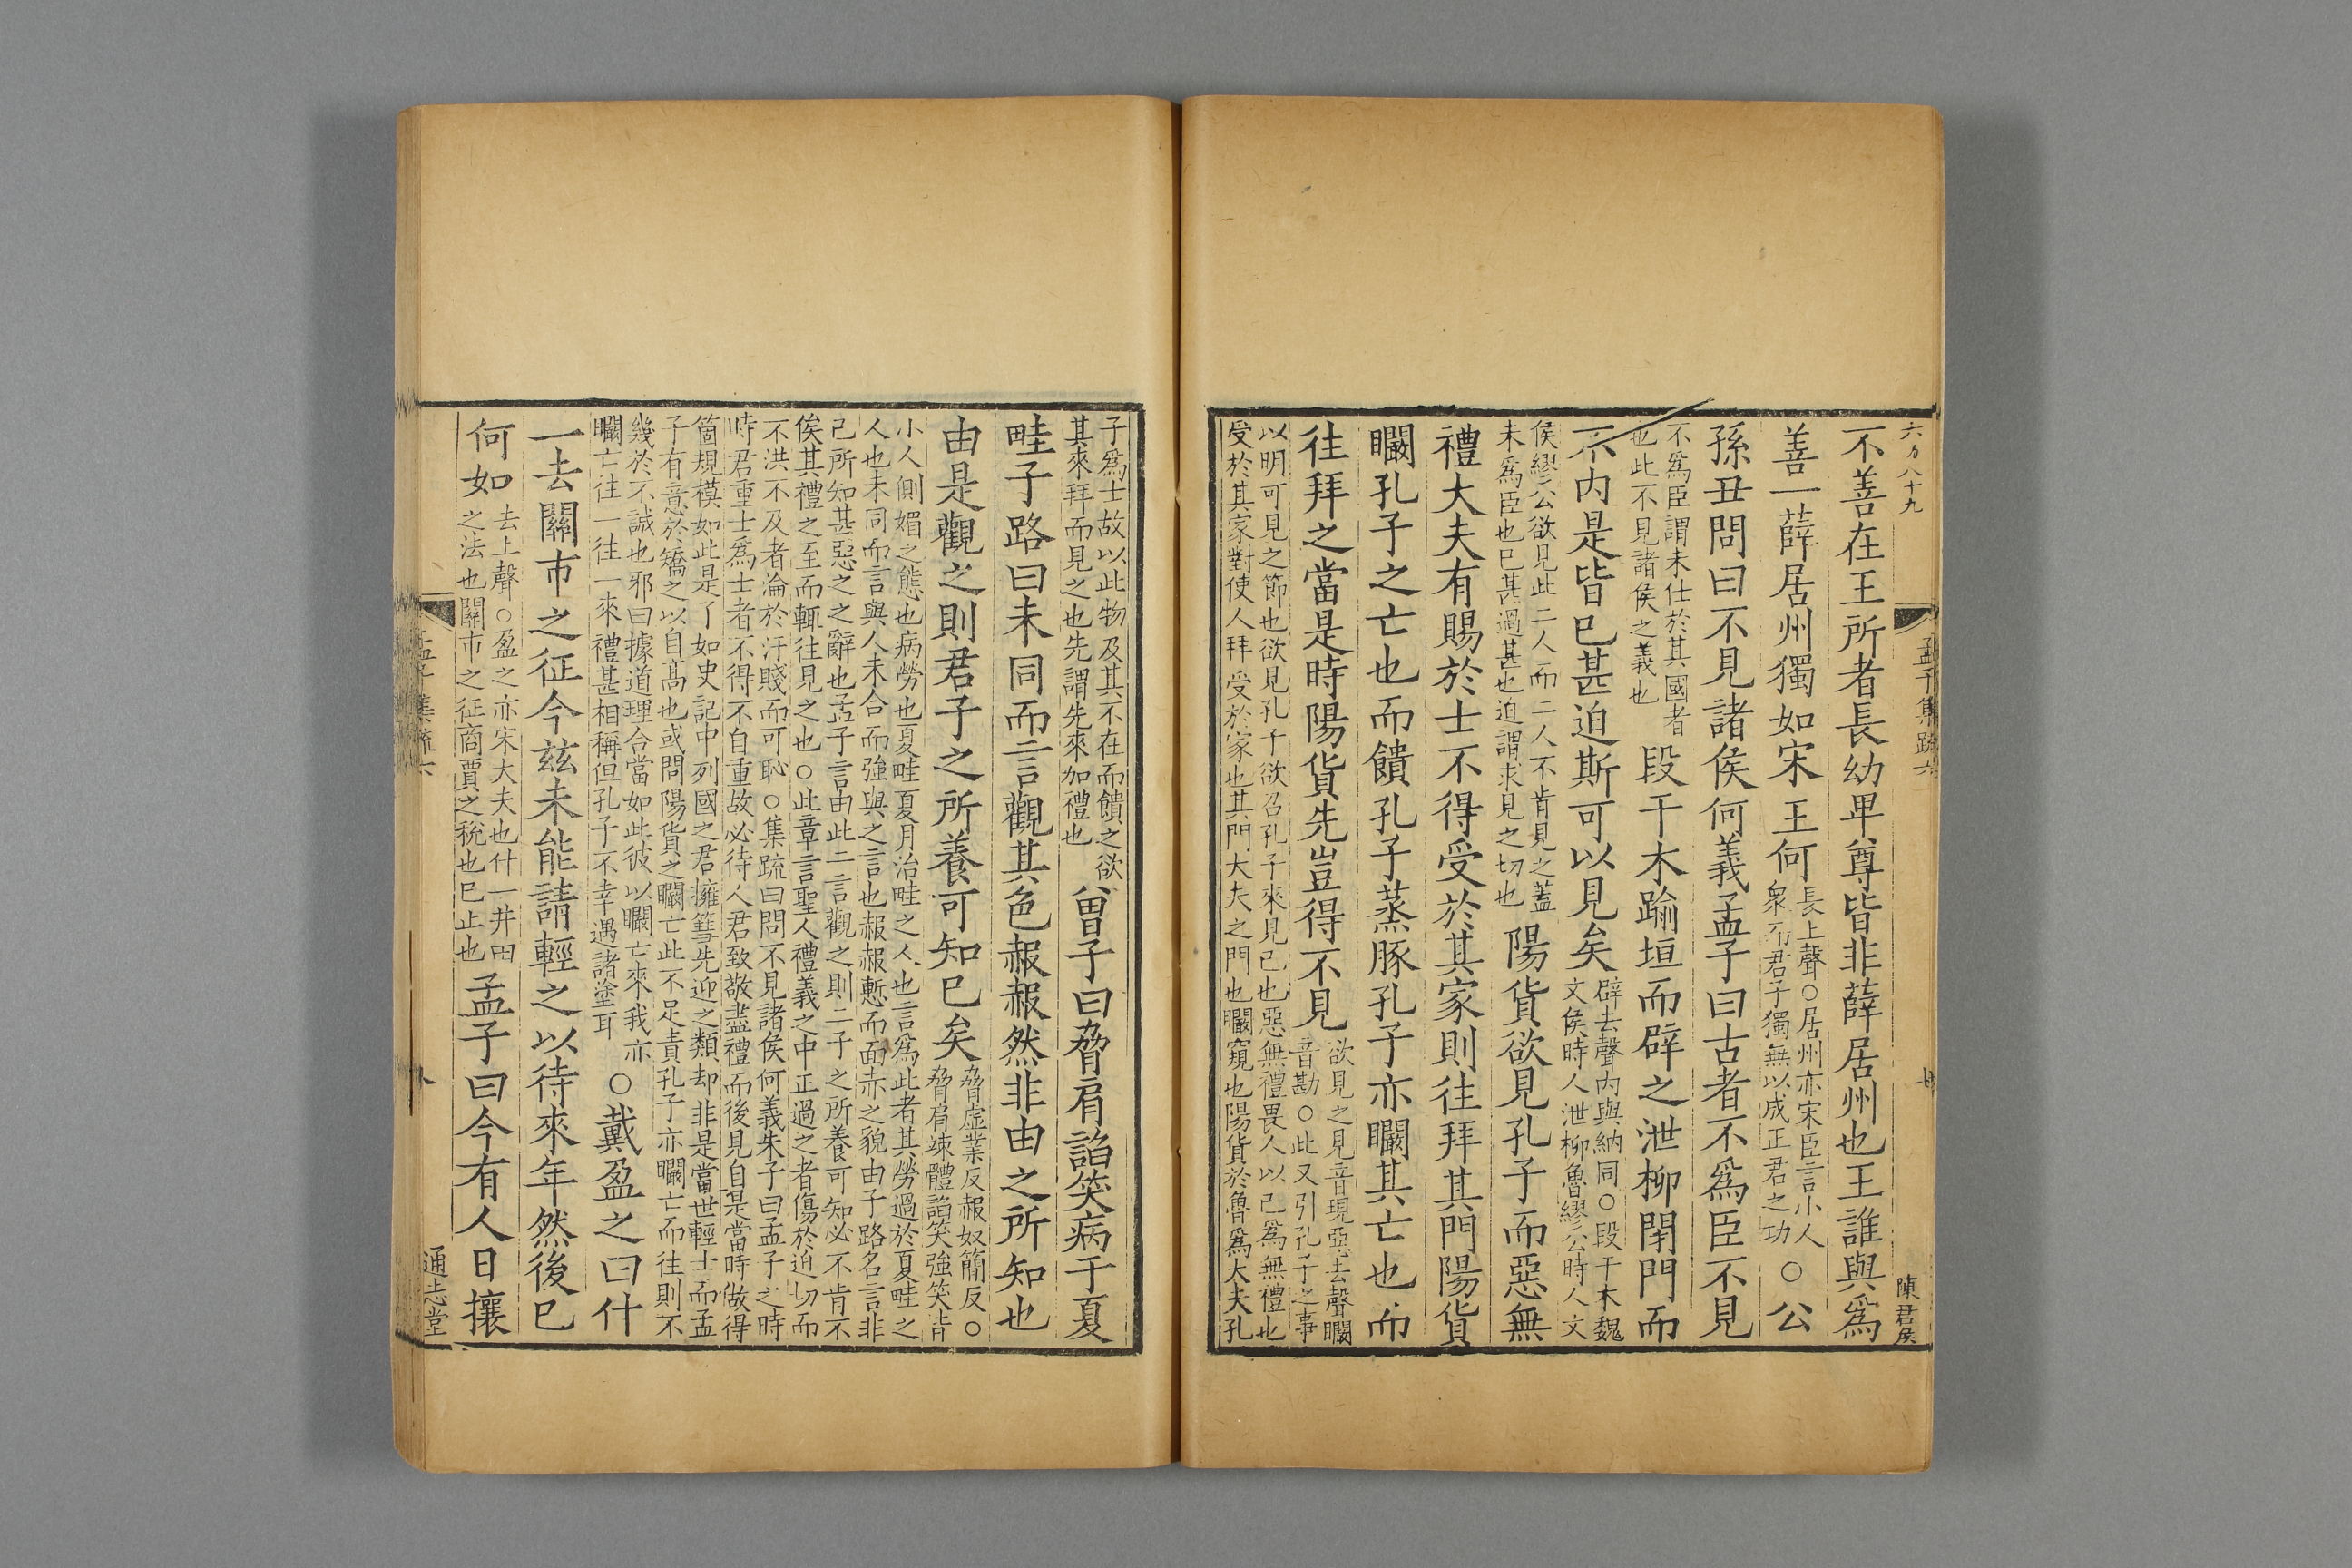 六百八十九
孟子集疏六
陳君侯
不善在王所者長幼卑尊皆非薛居州也王誰與為
善一薛居州獨如宋王何長上聲○居州亦宋臣言小人
衆而君子獨無以成正君之功○公
孫丑問曰不見諸侯何義孟子曰古者不為臣不見
不為臣謂未仕於其國者
也此不見諸侯之義也段干木踰垣而辟之泄柳閉門而
不內是皆已甚迫斯可以見矣辟去聲內與納同○段干木魏
文侯時人泄柳魯繆公時人文
侯繆公欲見此二人而二人不肯見之蓋
未為臣也已甚過甚也迫謂求見之切也陽貨欲見孔子而惡無
禮大夫有賜於士不得受於其家則往拜其門陽貨
矙孔子之亡也而饋孔子蒸豚孔子亦矙其亡也而
往拜之當是時陽貨先豈得不見欲見之見音現惡去聲矙
音勘○此又引孔子之事
以明可見之節也欲見孔子欲召孔子來見己也惡無禮畏人以己為無禮也
受於其家對使人拜受於家也其門大夫之門也矙窺也陽貨於魯為大夫孔
子為士故以此物及其不在而饋之欲
其來拜而見之也先謂先來加禮也曾子曰脅肩諂笑病于夏
畦子路曰未同而言觀其色赧赧然非由之所知也
由是觀之則君子之所養可知已矣脅虛業反赧奴簡反○
脅肩竦體諂笑強笑皆
小人側媚之態也病勞也夏畦夏月治畦之人也言為此者其勞過於夏畦之
人也未同而言與人未合而強與之言也赧赧慙而面赤之貌由子路名言非
己所知甚惡之之辭也孟子言由此二言觀之則二子之所養可知必不肯不
俟其禮之至而輒往見之也○此章言聖人禮義之中正過之者傷於迫切而
不洪不及者淪於汙賤而可恥○集疏曰問不見諸侯何義朱子曰孟子之時
時君重士為士者不得不自重故必待人君致敬盡禮而後見自是當時做得
箇規模如此是了如史記中列國之君擁篲先迎之類却非是當世輕士而孟
子有意於矯之以自高也或問陽貨之矙亡此不足責孔子亦矙亡而往則不
幾於不誠也邪曰據道理合當如此彼以矙亡來我亦
矙亡往一往一來禮甚相稱但孔子不幸遇諸塗耳○戴盈之曰什
一去關市之征今茲未能請輕之以待來年然後已
何如去上聲○盈之亦宋大夫也什一井田
之法也關市之征商賈之稅也已止也孟子曰今有人日攘
孟子集疏六
通志堂